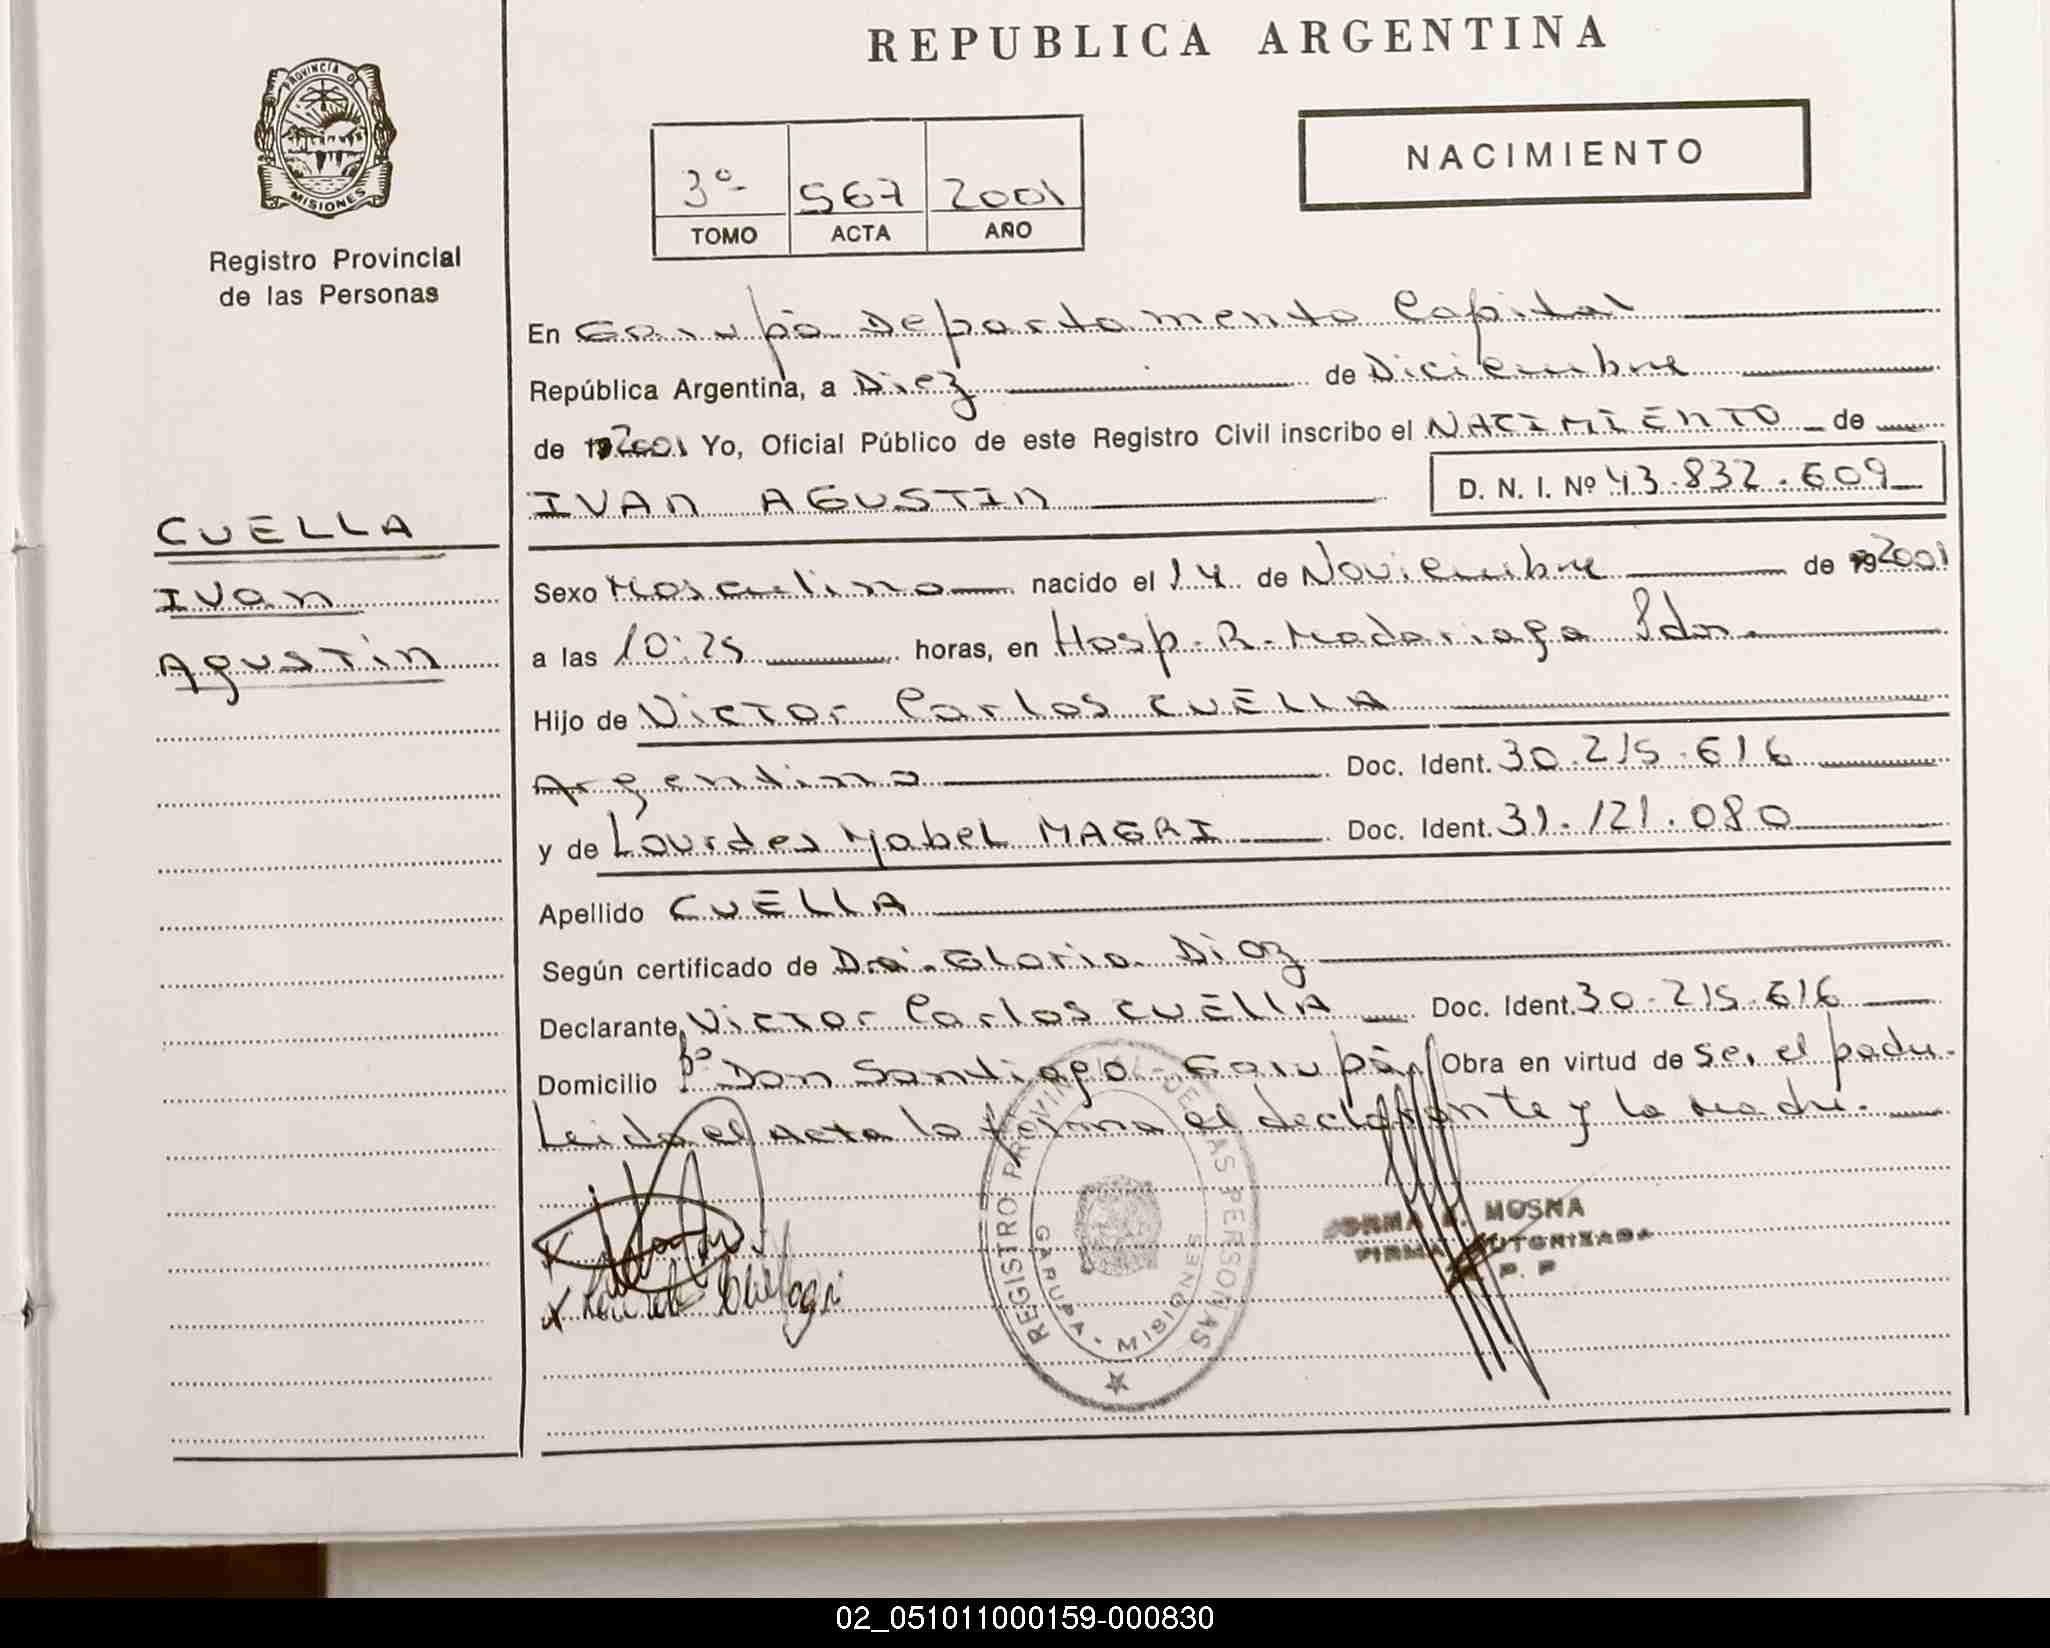 REPUBLICA ARGENTINA
PROVINCIA DE
MISIONES
Registro Provincial
de las Personas
NACIMIENTO
3º 567 2001
TOMO ACTA AÑO
En Garupá Departamento Capital
República Argentina, a Diez de Diciembre
de 2001 Yo, Oficial Público de este Registro Civil inscribo el NACIMIENTO de
IVAN AGUSTIN D. N. I. Nº 43.832.609
CUELLA
Ivan
Agustin
Sexo Masculino nacido el 14 de Noviembre de 2001
a las 10:25 horas, en Hosp. R. Madariaga Pdas.
Hijo de Victor Carlos CUELLA
Argentino Doc. Ident. 30.215.616
y de Lourdes Mabel MAGRI Doc. Ident. 31.121.080
Apellido CUELLA
Según certificado de Dra. Gloria Diaz
Declarante Victor Carlos CUELLA Doc. Ident. 30.215.616
Domicilio Bº Don Santiago - Garupá Obra en virtud de ser el padre.
Leida el acta la firma el declarante y la madre.
REGISTRO PROVINCIAL DE LAS PERSONAS
GARUPA - MISIONES
MOSNA
FIRMA AUTORIZADA
R. P. P
02_051011000159-000830